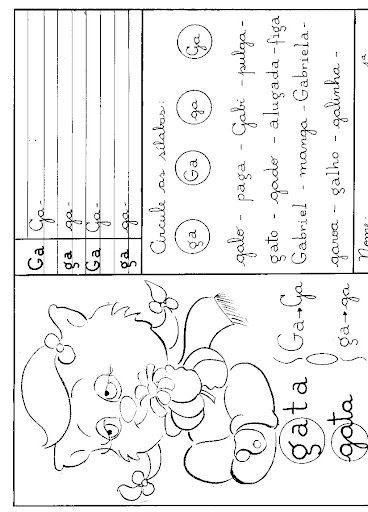 Ga Ga-
ga ga-
Ga Ga-
ga ga-
Circule as sílabas:
ga Ga ga Ga
galo - paga - Gabi - pulga -
gato - gado - alugada - figa
Gabriel - manga - Gabriela -
garoa - galho - galinha -
Nome:
gata
gata
Ga→Ga
ga→ga